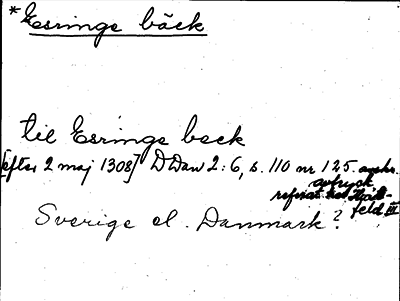 *Esringe bäck
til Esringe beck
[efter 2 maj 1308] DDan 2:6, s. 110 nr 125 avskr.
avtryck
referat hos Hvit-
feld III
Sverige el. Danmark?